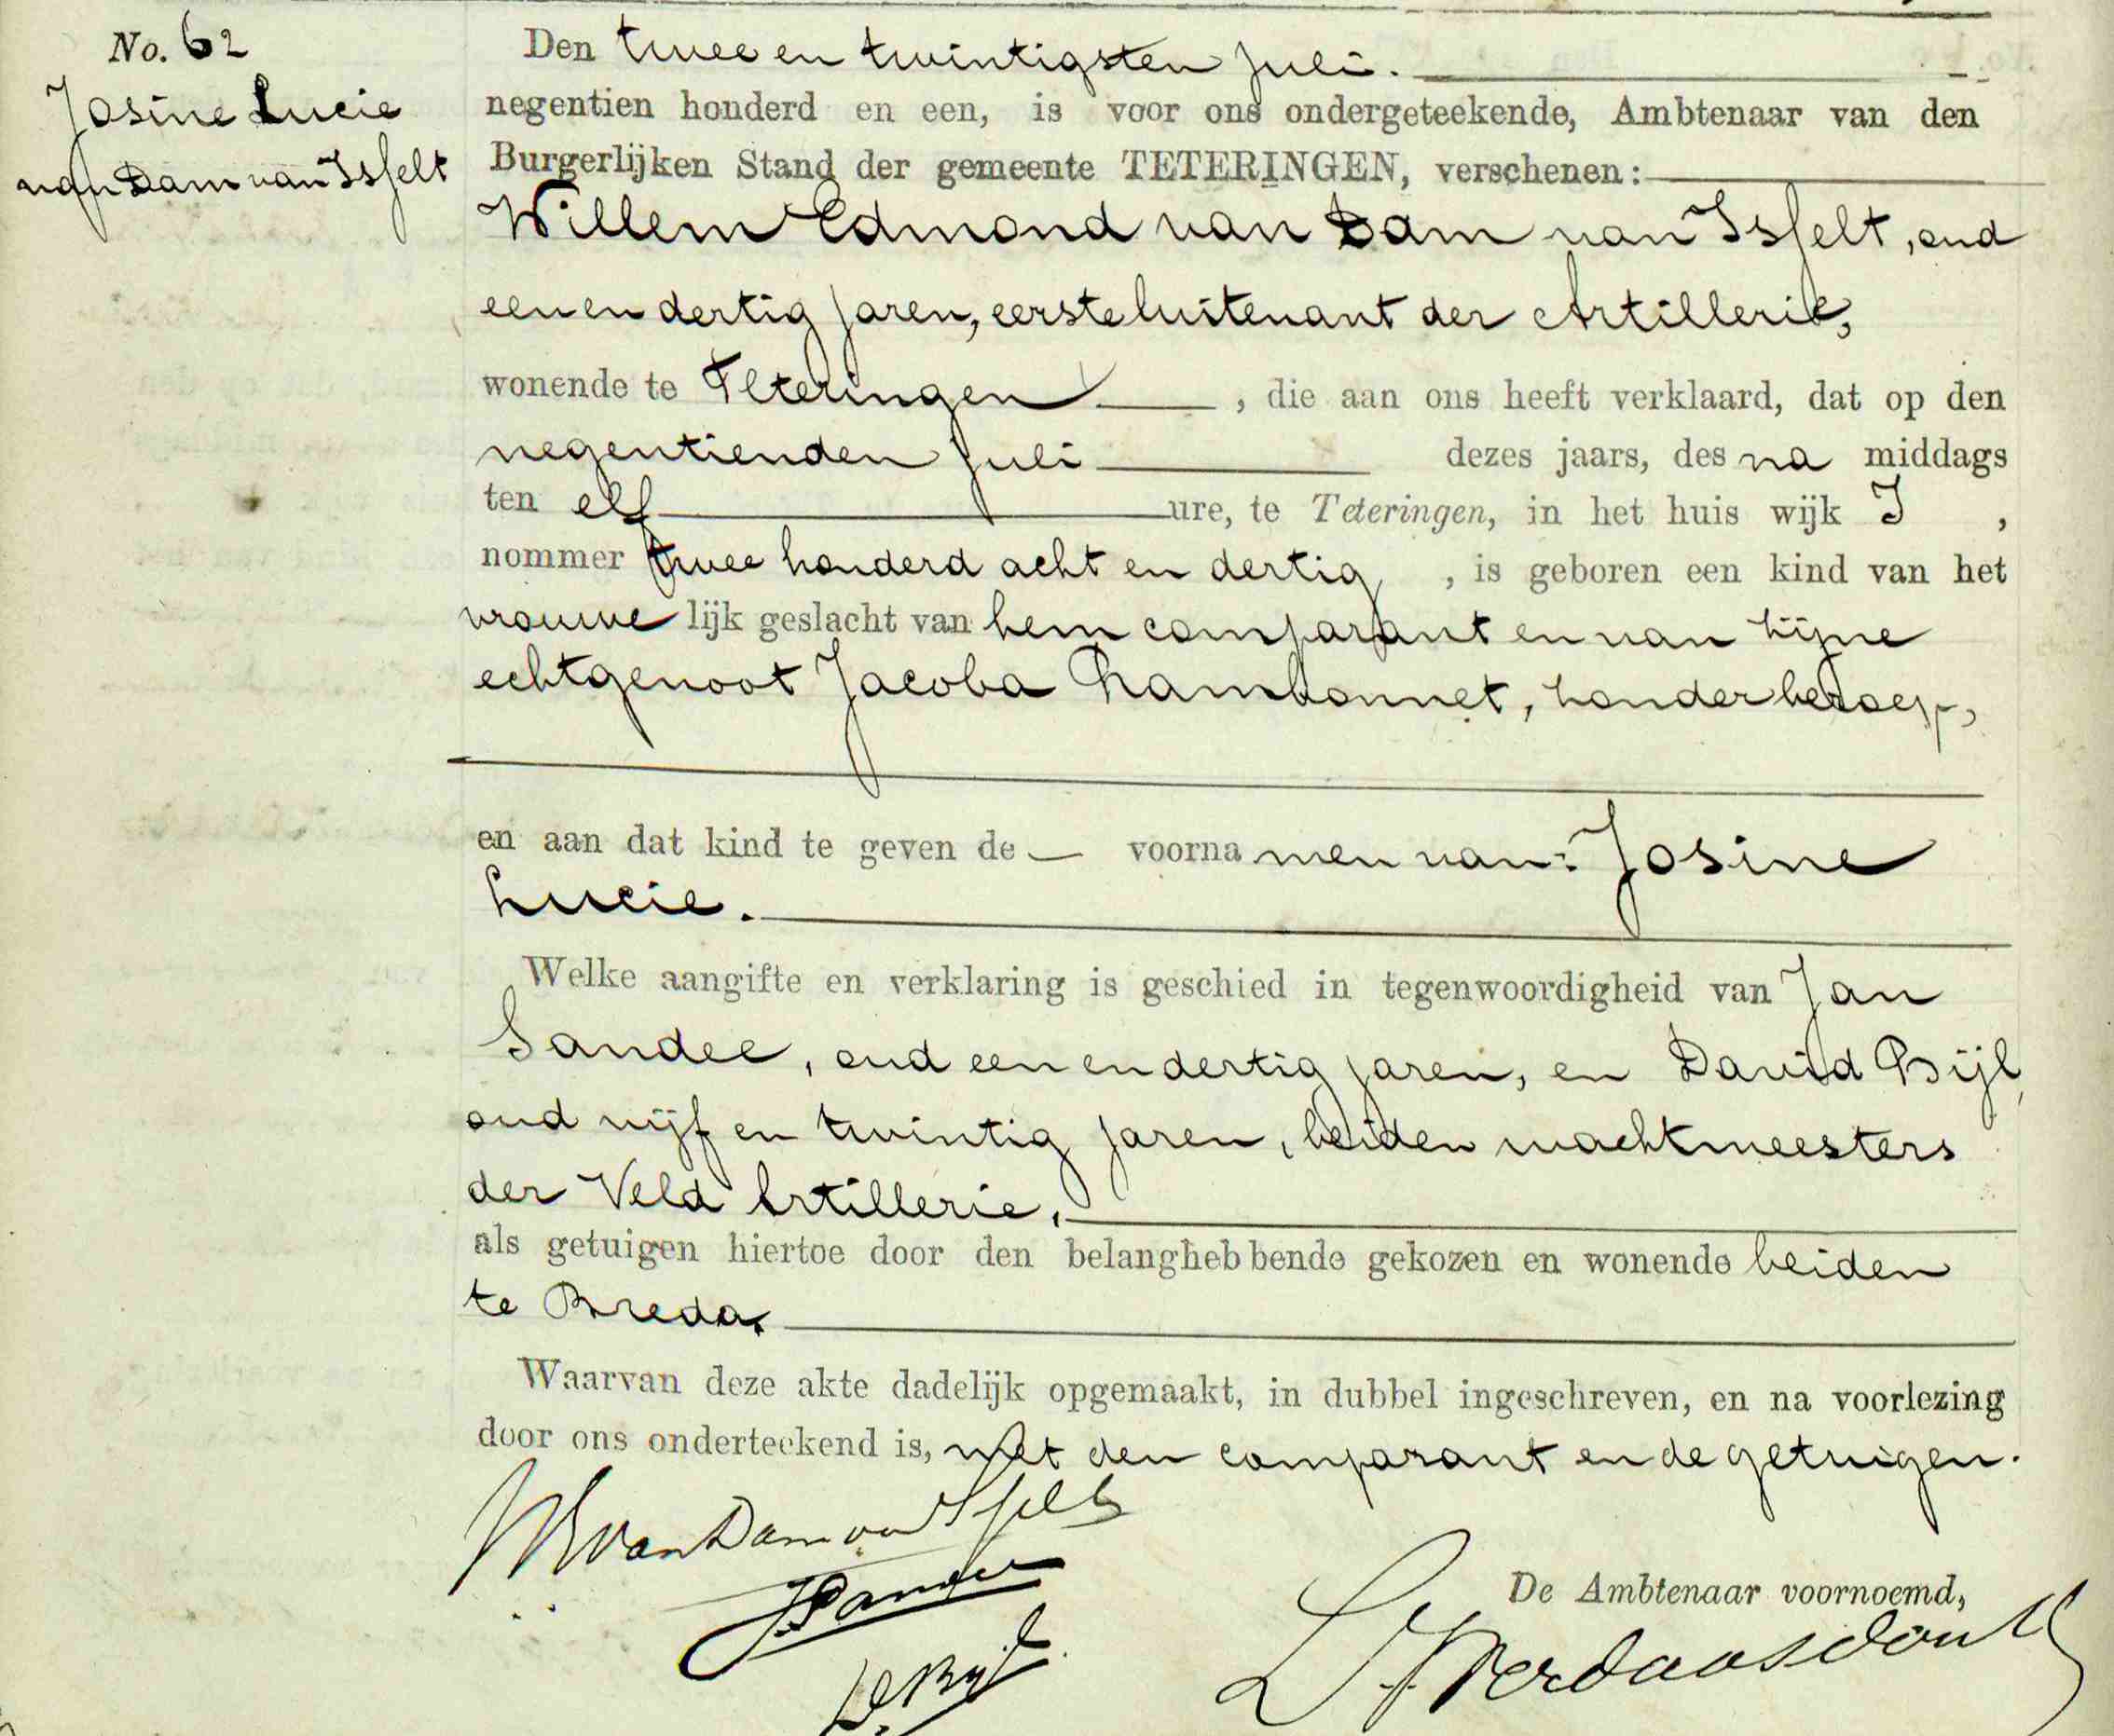 No. 62
Josine Lucie
van Dam van Isselt
Den twee en twintigsten Juli.
negentien honderd en een, is voor ons ondergeteekende, Ambtenaar van den
Burgerlijken Stand der gemeente TETERINGEN, verschenen:
Willem Edmond van Dam van Isselt, oud
een en dertig jaren, eerste luitenant der Artillerie,
wonende te Teteringen, die aan ons heeft verklaard, dat op den
negentienden Juli dezes jaars, des na middags
ten elf ure, te Teteringen, in het huis wijk I,
nommer twee honderd acht en dertig, is geboren een kind van het
vrouwe lijk geslacht van hem comparant en van zijne
echtgenoot Jacoba Rambonnet, zonder beroep,
en aan dat kind te geven de — voorna men van: Josine
Lucie.
Welke aangifte en verklaring is geschied in tegenwoordigheid van Jan
Sandee, oud een en dertig jaren, en David Bijl,
oud vijf en twintig jaren, beiden wachtmeesters
der Veld Artillerie,
als getuigen hiertoe door den belanghebbende gekozen en wonende beiden
te Breda.
Waarvan deze akte dadelijk opgemaakt, in dubbel ingeschreven, en na voorlezing
door ons onderteekend is, met den comparant en de getuigen.
WE van Dam van Isselt
J Sandee
De Ambtenaar voornoemd,
D. Bijl